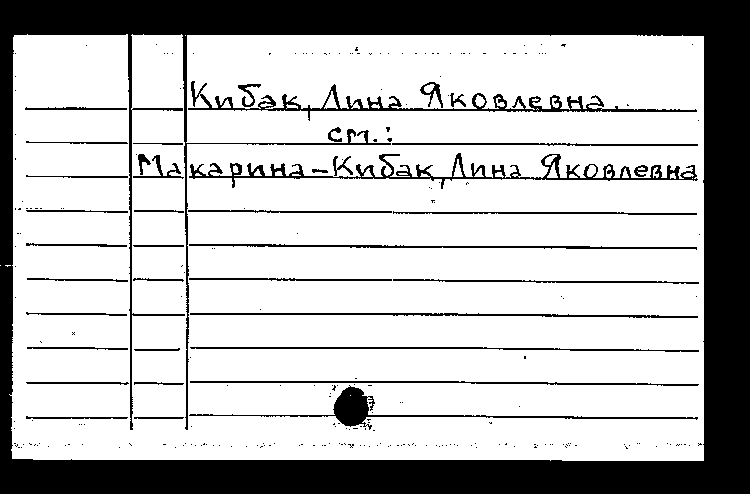 Кибак, Лина Яковлевна.
см.:
Макарина-Кибак, Лина Яковлевна